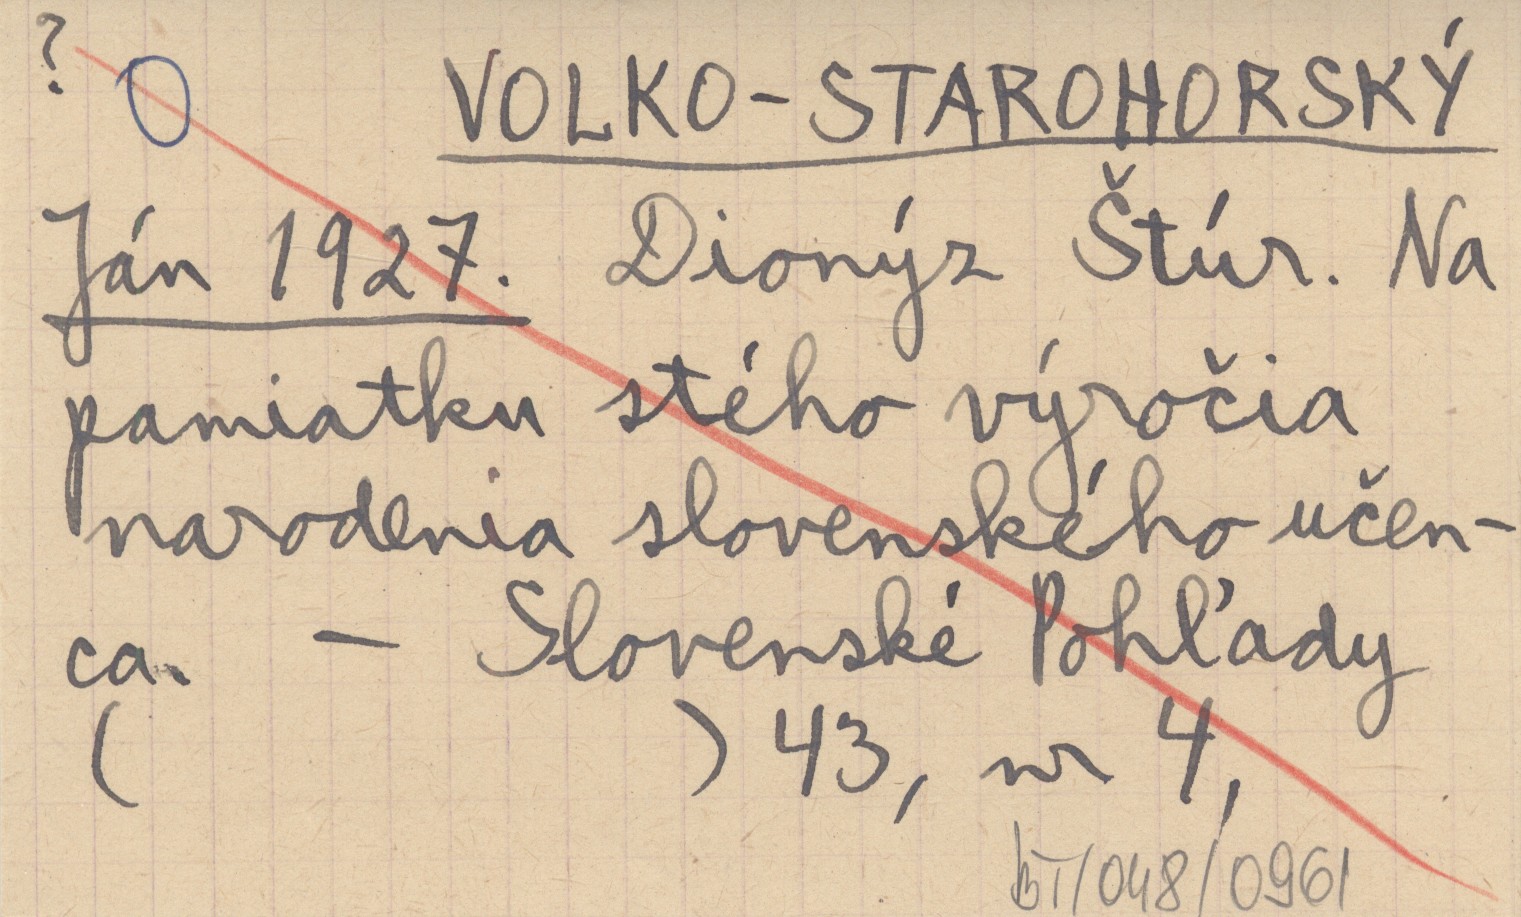 ?
O
VOLKO-STAROHORSKÝ
Ján 1927. Dionýz Štúr. Na
pamiatku stého výročia
narodenia slovenského učen-
ca. — Slovenské Pohľady
( ) 43, nr 4,
BT/048/0961